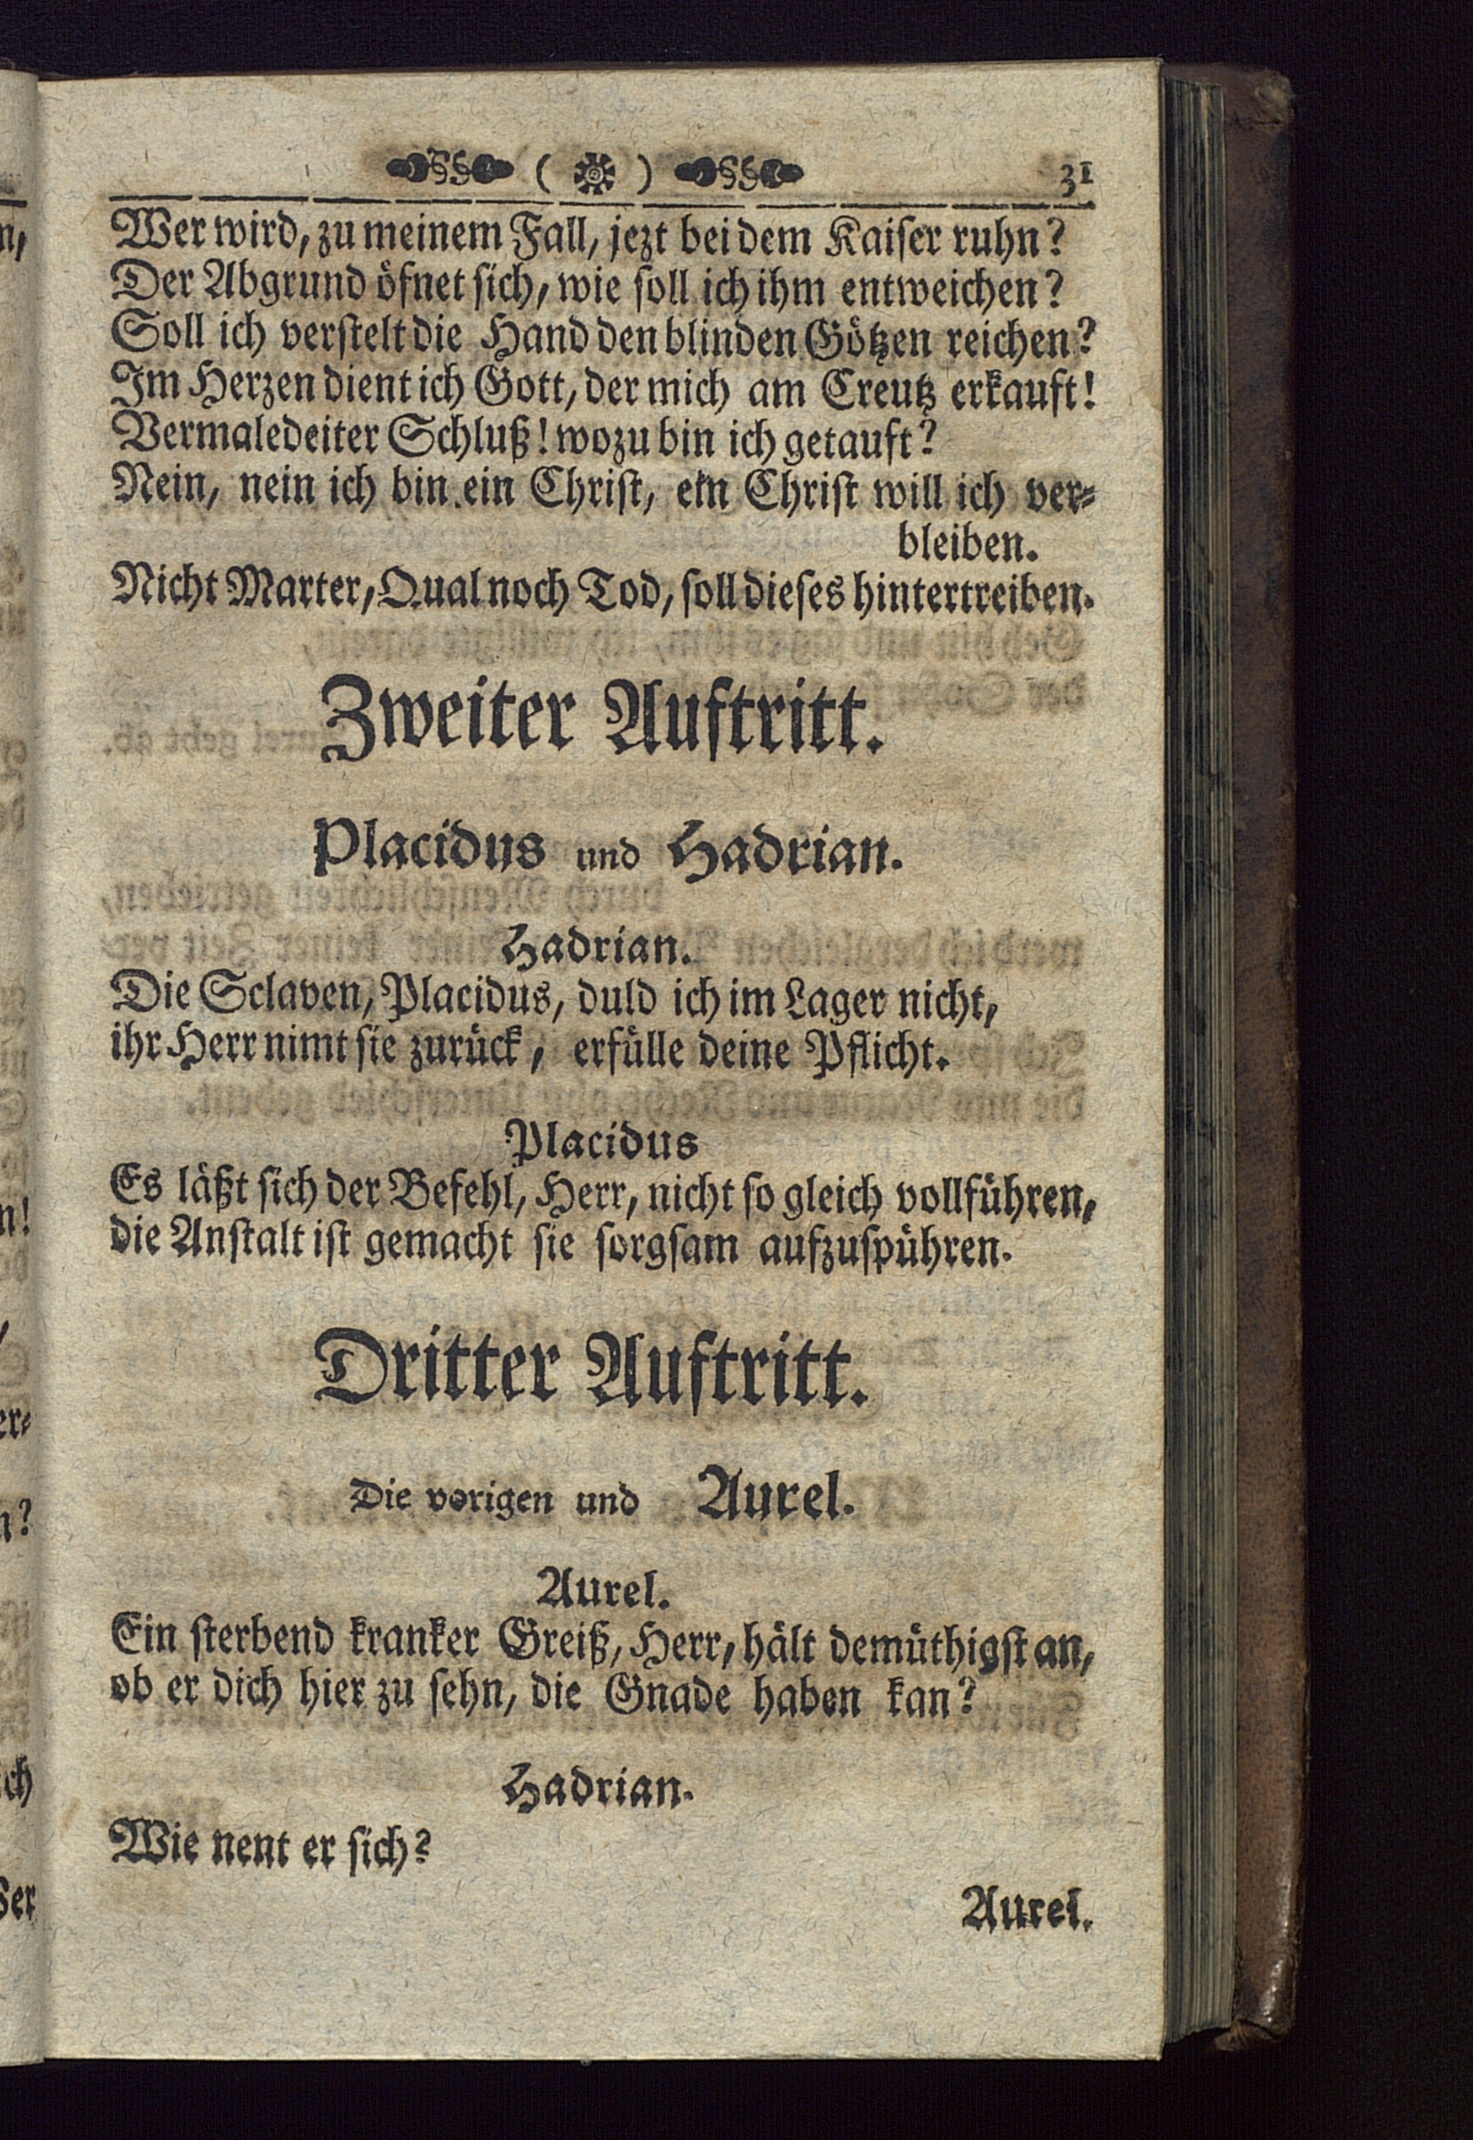 ( ) 31
Wer wird, zu meinem Fall, jezt bei dem Kaiser ruhn?
Der Abgrund öfnet sich, wie soll ich ihm entweichen?
Soll ich verstelt die Hand den blinden Götzen reichen?
Im Herzen dient ich Gott, der mich am Creutz erkauft!
Vermaledeiter Schluß! wozu bin ich getauft?
Nein, nein ich bin ein Christ, ein Christ will ich ver-
bleiben.
Nicht Marter, Qual noch Tod, soll dieses hintertreiben.
Zweiter Auftritt.
Placidus und Hadrian.
Hadrian.
Die Sclaven, Placidus, duld ich im Lager nicht,
ihr Herr nimt sie zurück, erfülle deine Pflicht.
Placidus
Es läßt sich der Befehl, Herr, nicht so gleich vollführen,
die Anstalt ist gemacht sie sorgsam aufzuspühren.
Dritter Auftritt.
Die vorigen und Aurel.
Aurel.
Ein sterbend kranker Greiß, Herr, hält demüthigst an,
ob er dich hier zu sehn, die Gnade haben kan?
Hadrian.
Wie nent er sich?
Aurel.